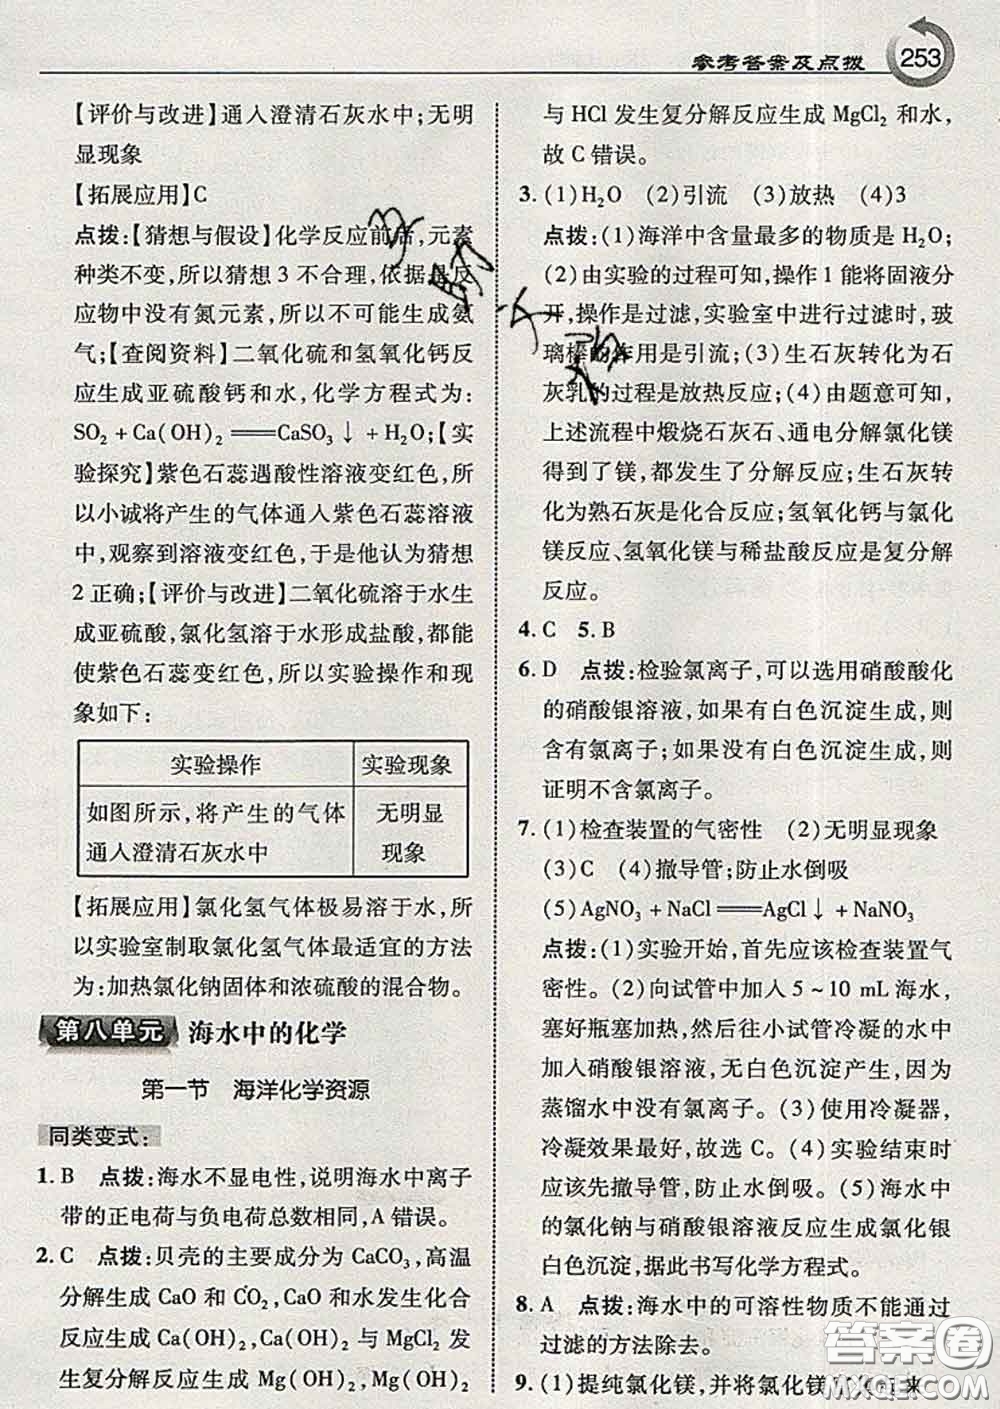 参考答案及点拨
253
【评价与改进】通入澄清石灰水中;无明
显现象
【拓展应用】C
点拨:【猜想与假设】化学反应前后,元素
种类不变,所以猜想 3 不合理,依据是反
应物中没有氮元素,所以不可能生成氨
气;【查阅资料】二氧化硫和氢氧化钙反
应生成亚硫酸钙和水,化学方程式为:
SO₂ + Ca(OH)₂ ══ CaSO₃↓ + H₂O;【实
验探究】紫色石蕊遇酸性溶液变红色,所
以小诚将产生的气体通入紫色石蕊溶液
中,观察到溶液变红色,于是他认为猜想
2 正确;【评价与改进】二氧化硫溶于水生
成亚硫酸,氯化氢溶于水形成盐酸,都能
使紫色石蕊变红色,所以实验操作和现
象如下:
实验操作 实验现象
如图所示,将产生的气体 无明显
通入澄清石灰水中 现象
【拓展应用】氯化氢气体极易溶于水,所
以实验室制取氯化氢气体最适宜的方法
为:加热氯化钠固体和浓硫酸的混合物。
第八单元 海水中的化学
第一节 海洋化学资源
同类变式:
1. B 点拨:海水不显电性,说明海水中离子
带的正电荷与负电荷总数相同,A 错误。
2. C 点拨:贝壳的主要成分为 CaCO₃,高温
分解生成 CaO 和 CO₂,CaO 和水发生化合
反应生成 Ca(OH)₂,Ca(OH)₂ 与 MgCl₂ 发
生复分解反应生成 Mg(OH)₂,Mg(OH)₂
与 HCl 发生复分解反应生成 MgCl₂ 和水,
故 C 错误。
3. (1)H₂O (2)引流 (3)放热 (4)3
点拨:(1)海洋中含量最多的物质是 H₂O;
(2)由实验的过程可知,操作 1 能将固液分
开,操作是过滤,实验室中进行过滤时,玻
璃棒的作用是引流;(3)生石灰转化为石
灰乳的过程是放热反应;(4)由题意可知,
上述流程中煅烧石灰石、通电分解氯化镁
得到了镁,都发生了分解反应;生石灰转
化为熟石灰是化合反应;氢氧化钙与氯化
镁反应、氢氧化镁与稀盐酸反应是复分解
反应。
4. C 5. B
6. D 点拨:检验氯离子,可以选用硝酸酸化
的硝酸银溶液,如果有白色沉淀生成,则
含有氯离子;如果没有白色沉淀生成,则
证明不含氯离子。
7. (1)检查装置的气密性 (2)无明显现象
(3)C (4)撤导管;防止水倒吸
(5)AgNO₃ + NaCl ══ AgCl↓ + NaNO₃
点拨:(1)实验开始,首先应该检查装置气
密性。(2)向试管中加入 5 ~ 10 mL 海水,
塞好瓶塞加热,然后往小试管冷凝的水中
加入硝酸银溶液,无白色沉淀产生,因为
蒸馏水中没有氯离子。(3)使用冷凝器,
冷凝效果最好,故选 C。(4)实验结束时
应该先撤导管,防止水倒吸。(5)海水中
的氯化钠与硝酸银溶液反应生成氯化银
白色沉淀,据此书写化学方程式。
8. A 点拨:海水中的可溶性物质不能通过
过滤的方法除去。
9. (1)提纯氯化镁,并将氯化镁
来
答案圈
MXQE.COM